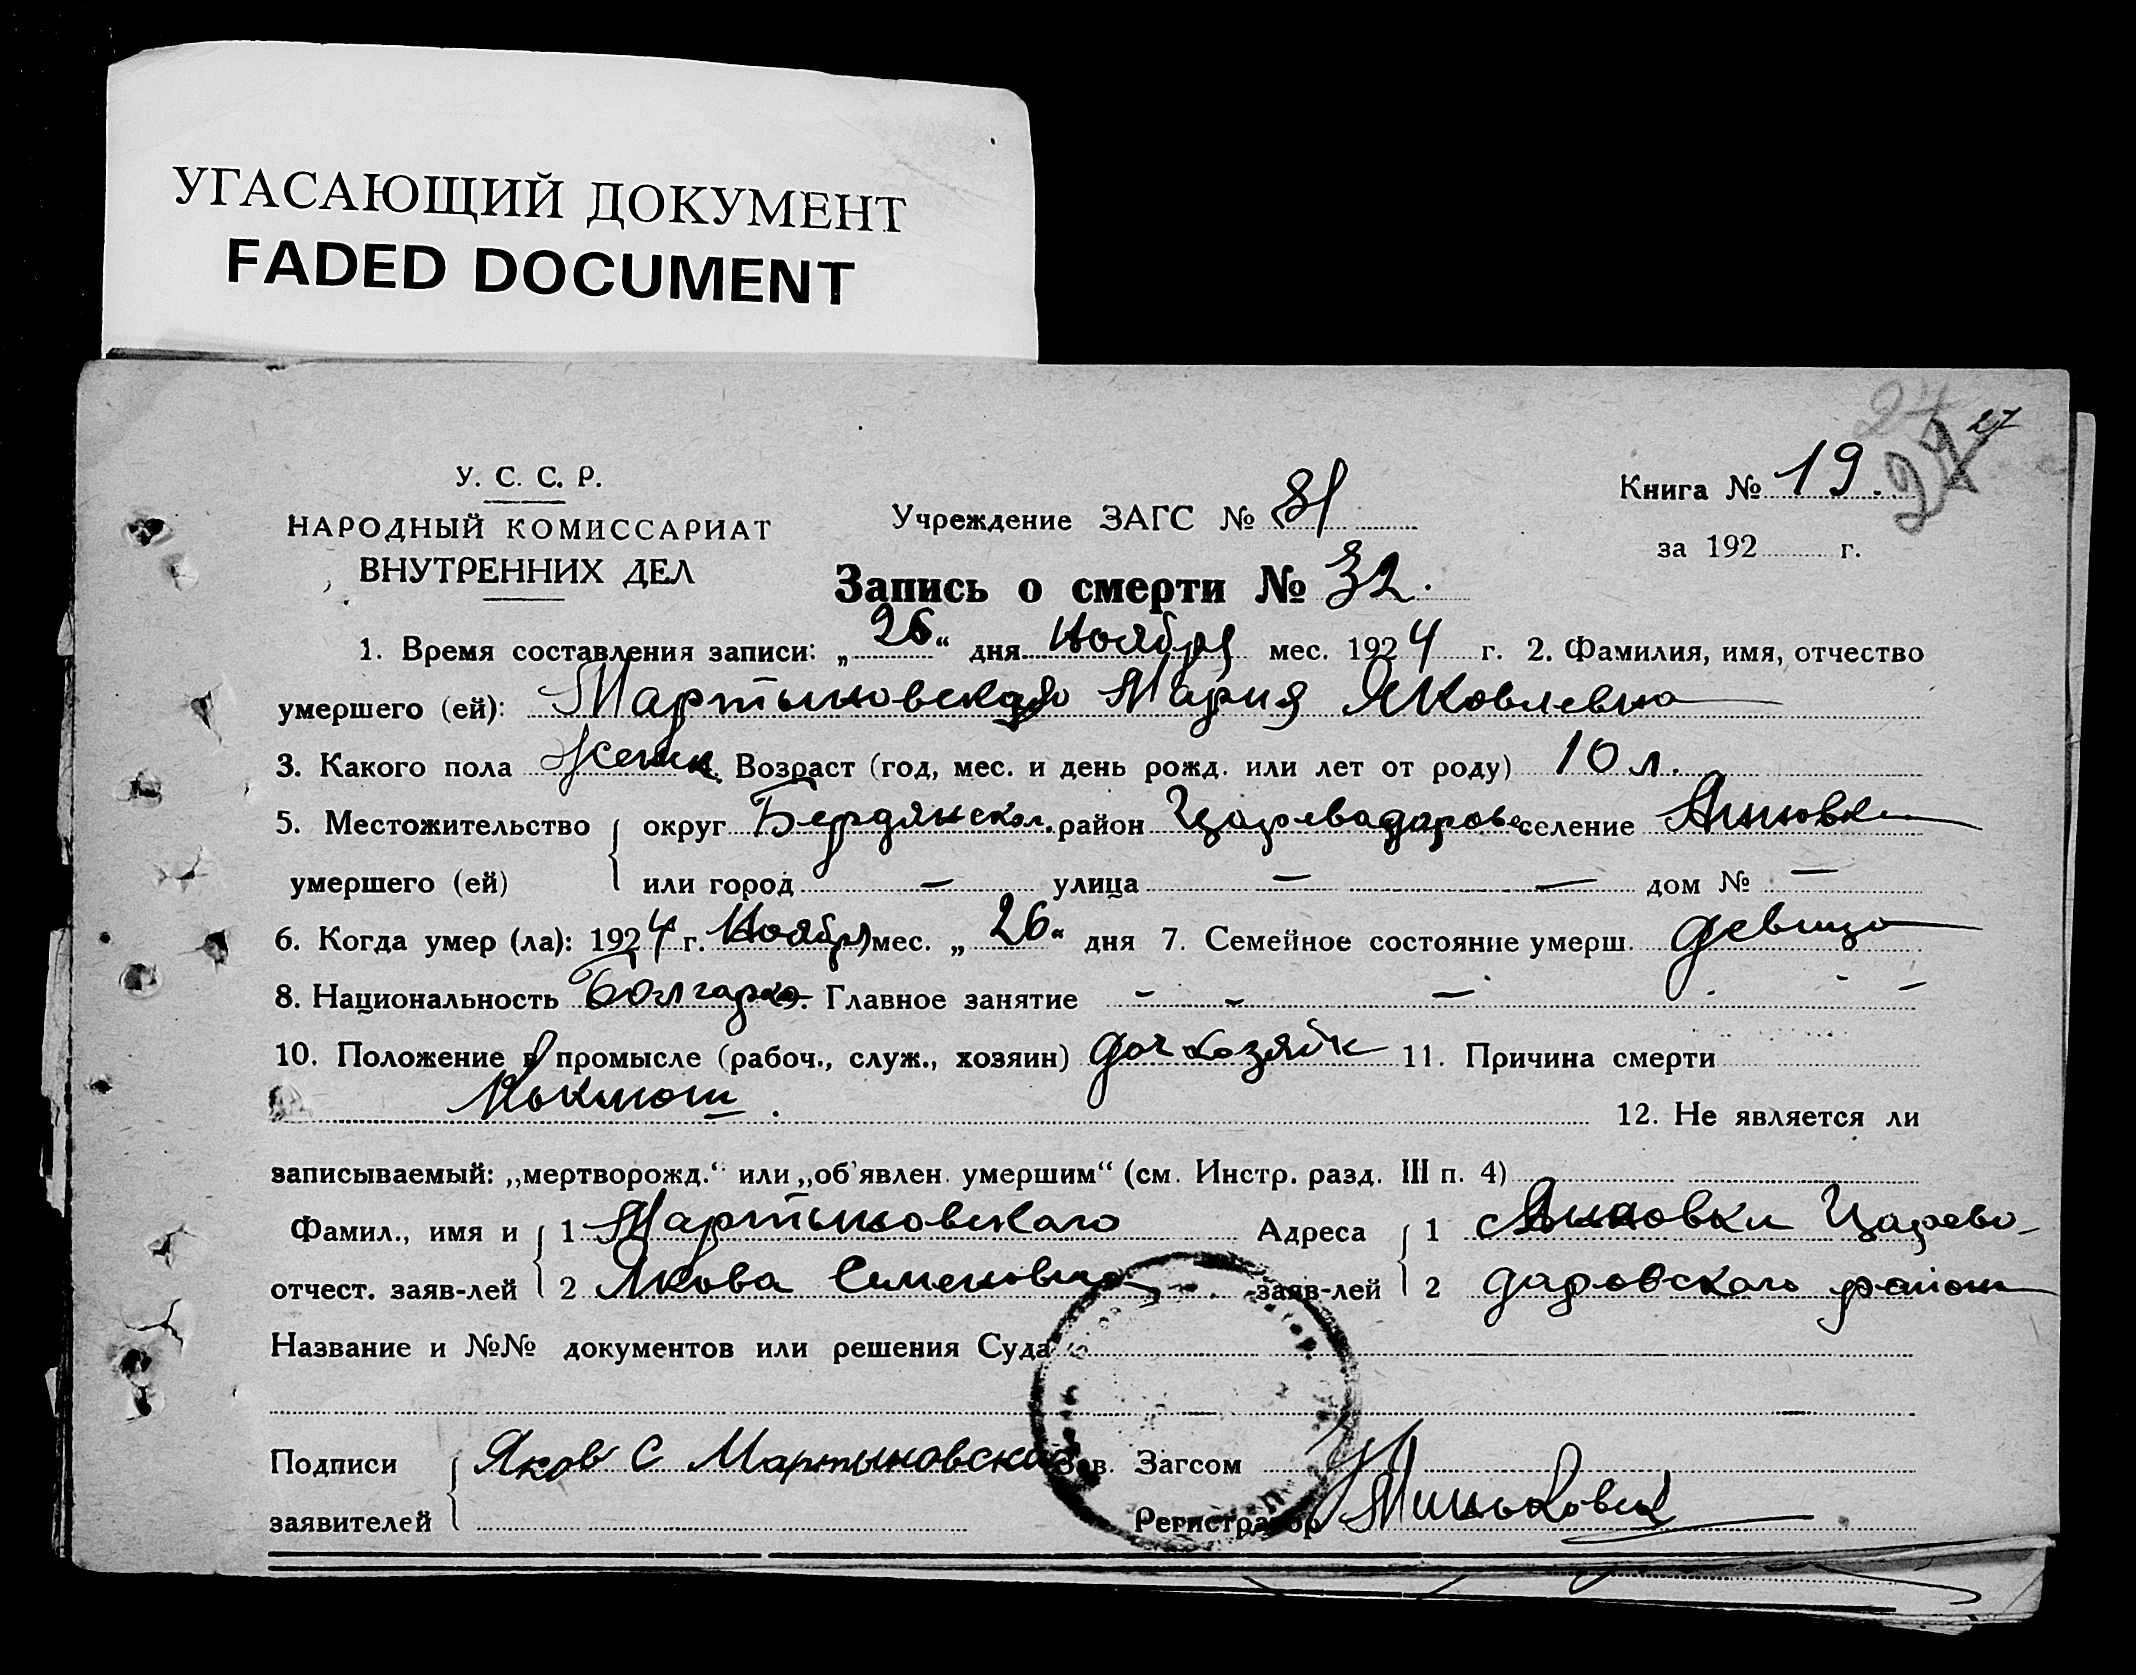 УГАСАЮЩИЙ ДОКУМЕНТ
FADED DOCUMENT
27 27
27
У. С. С. Р.
НАРОДНЫЙ КОМИССАРИАТ
ВНУТРЕННИХ ДЕЛ
Учреждение ЗАГС № 81
Книга № 19.
за 192 г.
Запись о смерти № 32.
1. Время составления записи: „26“ дня Ноября мес. 1924 г. 2. Фамилия, имя, отчество
умершего (ей): Мартыновская Мария Яковлевна
3. Какого пола Женск. Возраст (год, мес. и день рожд. или лет от роду) 10 л.
5. Местожительство округ Бердянском. район Царевадарове селение Анновке
умершего (ей) или город — улица — — дом № —
6. Когда умер (ла): 1924 г. Ноября мес. „26“ дня 7. Семейное состояние умерш. девица
8. Национальность Болгарка. Главное занятие - - -
10. Положение в промысле (рабоч., служ., хозяин) доч хозяйк 11. Причина смерти
12. Не является ли
записываемый: „мертворожд.“ или „об'явлен. умершим“ (см. Инстр. разд. III п. 4)
Фамил., имя и 1 Мартыновского Адреса 1 с Анновки Царево-
отчест. заяв-лей 2 Якова Семеновича заяв-лей 2 даровского района
Название и №№ документов или решения Суда
Подписи Яков С Мартыновской Зав. Загсом
заявителей Регистратор